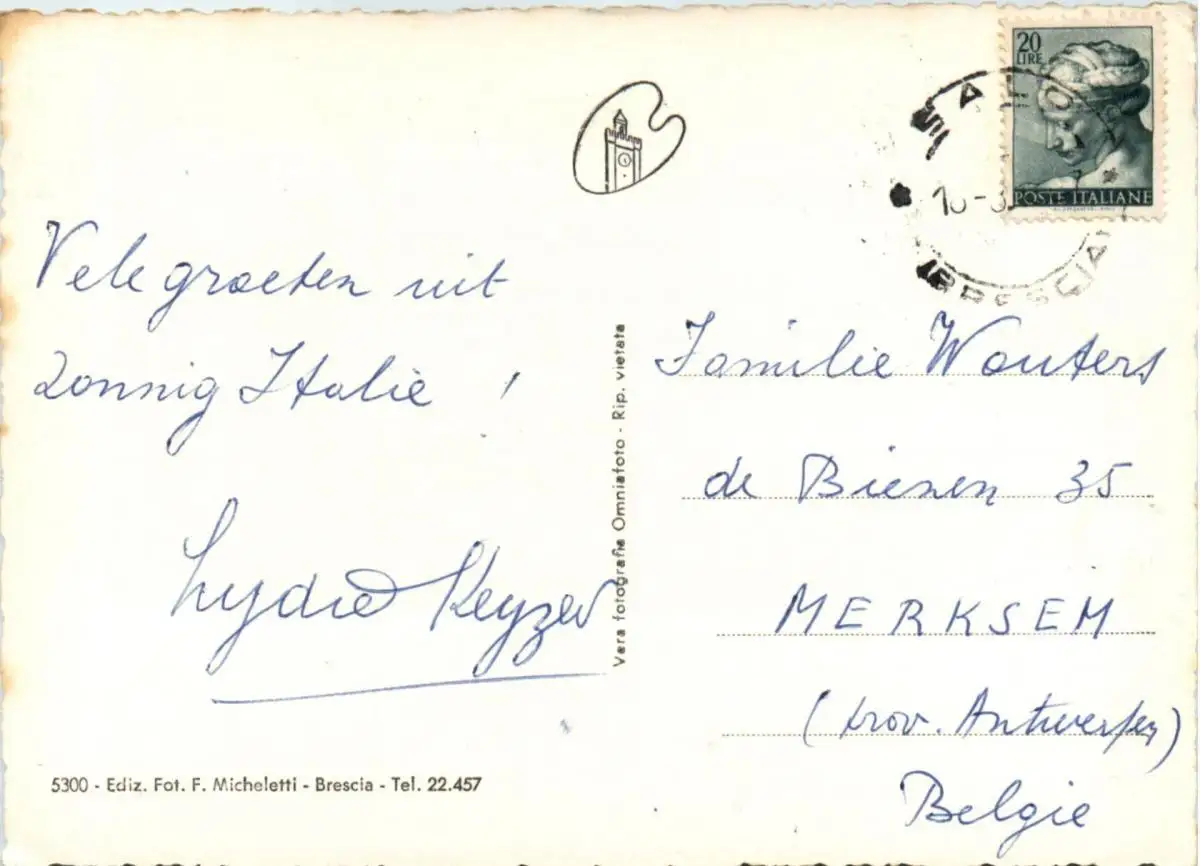 20
LIRE
POSTE ITALIANE
BRESCIA
Vele groeten uit
zonnig Italie !
Lydie Keyzer
Vera fotografia Omniafoto - Rip. vietata
Familie Wouters
de Biezen 35
MERKSEM
(prov. Antwerpen)
Belgie
5300 - Ediz. Fot. F. Micheletti - Brescia - Tel. 22.457